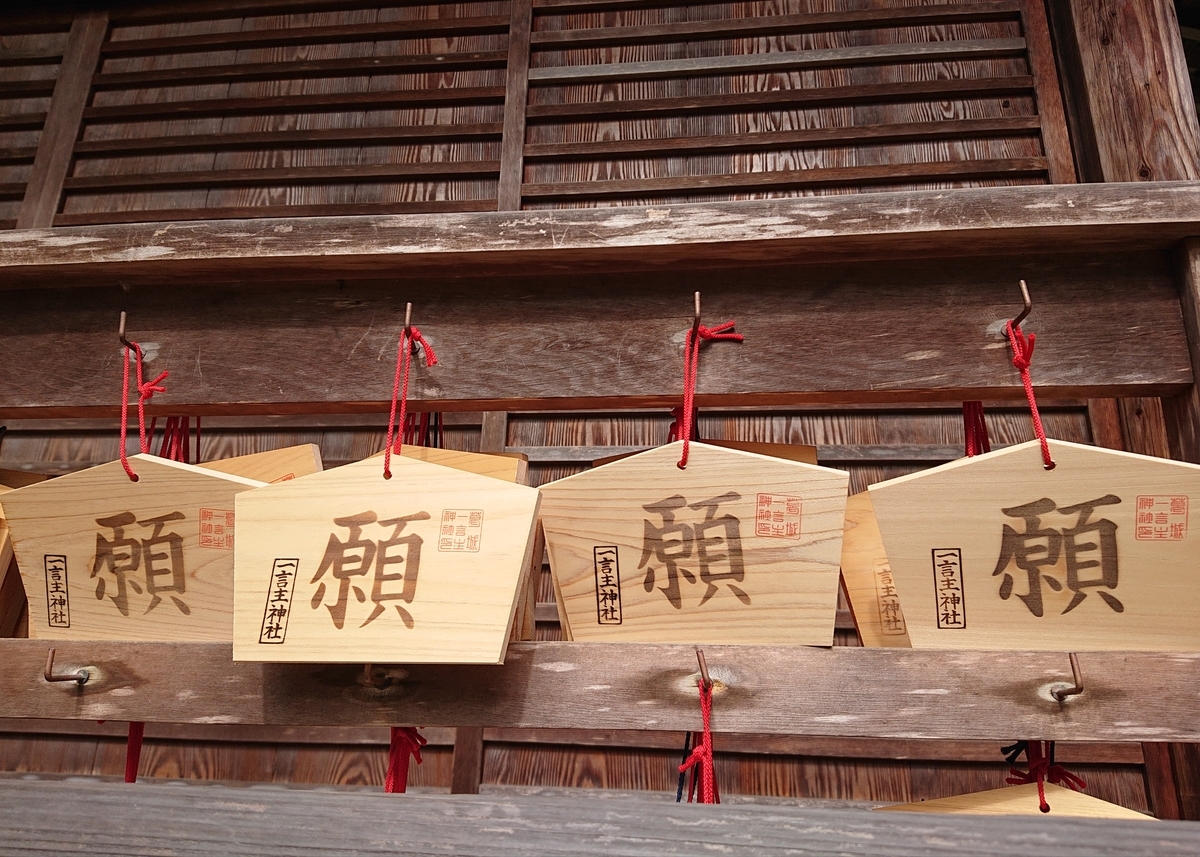 願
一言主神社
葛城
一言主
神社印
願
一言主神社
葛城
一言主
願
一言主神社
葛城
一言主
願
一言主神社
葛城
一言主
一言主神社